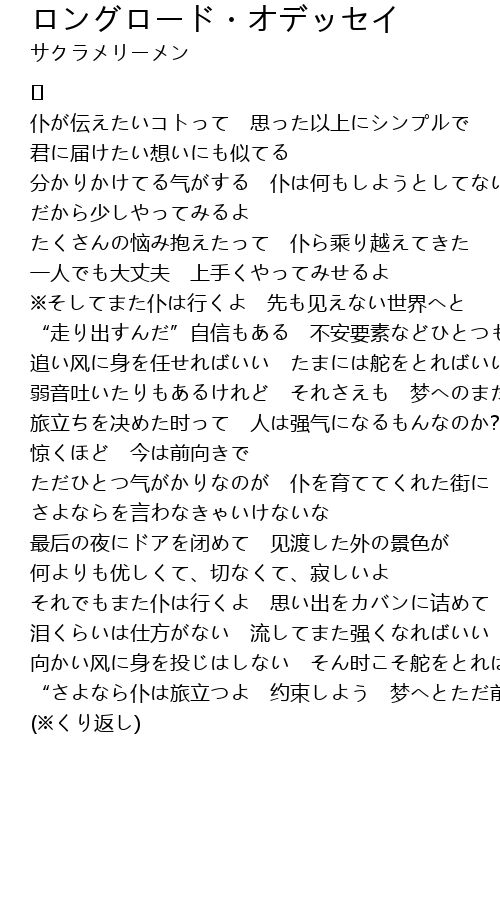 ロングロード・オデッセイ
サクラメリーメン
仆が伝えたいコトって　思った以上にシンプルで
君に届けたい想いにも似てる
分かりかけてる气がする　仆は何もしようとしてない
だから少しやってみるよ
たくさんの悩み抱えたって　仆ら乘り越えてきた
一人でも大丈夫　上手くやってみせるよ
※そしてまた仆は行くよ　先も见えない世界へと
“走り出すんだ”自信もある　不安要素などひとつも
追い风に身を任せればいい　たまには舵をとればいい
弱音吐いたりもあるけれど　それさえも　梦へのまた
旅立ちを决めた时って　人は强气になるもんなのか?
惊くほど　今は前向きで
ただひとつ气がかりなのが　仆を育ててくれた街に
さよならを言わなきゃいけないな
最后の夜にドアを闭めて　见渡した外の景色が
何よりも优しくて、切なくて、寂しいよ
それでもまた仆は行くよ　思い出をカバンに诘めて
泪くらいは仕方がない　流してまた强くなればいい
向かい风に身を投じはしない　そん时こそ舵をとれは
“さよなら仆は旅立つよ　约束しよう　梦へとただ前
(※くり返し)